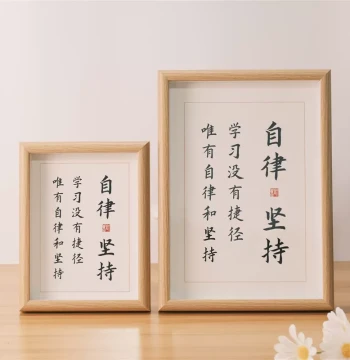 自律 坚持
学习没有捷径
唯有自律和坚持
自律 坚持
学习没有捷径
唯有自律和坚持